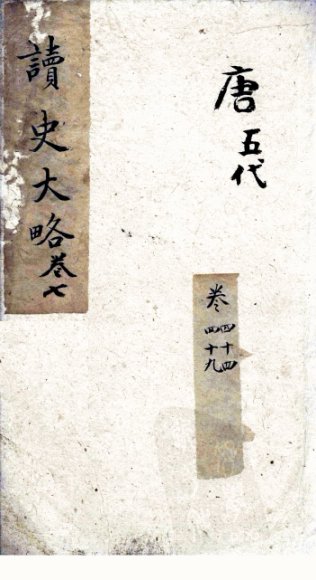 唐五代
卷四十四
四十九
讀史大略卷七